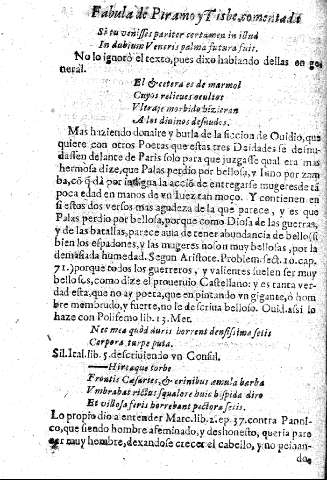 Fabula de Piramo y Tisbe, comentada
Si tu venisses pariter certamen in illud
In dubium Veneris palma futura fuit.
No lo ignorò el texto, pues dixo hablando dellas en ge-
neral.
El &cetera es de marmol
Cuyos relieues ocultos
Vltraje morbido hizieran
A los diuinos desnudos.
Mas haziendo donaire y burla de la ficcion de Ouidio, que
quiere con otros Poetas que estas tres Deidades se desnu-
dassen delante de Paris solo para que juzgasse qual era mas
hermosa dize, que Palas perdio por bellosa, y Iuno por zam
ba, cõ q̃ dà por indigna la acciõ de entregarse mugeres de tã
poca edad en manos de vn Iuez tan moço. Y contienen en
si estos dos versos mas agudeza de la que parece, y es que
Palas perdio por bellosa, porque como Diosa de las guerras,
y de las batallas, parece auia de tener abundancia de bello (si
bien los espadones, y las mugeres no son muy bellosas, por la
demasiada humedad. Segun Aristote. Problem. sect. 10. cap.
71.) porque todos los guerreros, y valientes suelen ser muy
bellosos, como dize el proueruio Castellano: y es tanta ver-
dad esta, que no ay poeta, que en pintando vn gigante, ó hom
bre membrudo, y fuerte, no le descriua belloso. Ouid. assi lo
haze con Polifemo lib. 13. Met.
Nec mea quòd duris horrent densissima setis
Corpora turpe puta.
Sil. Ital. lib. 5. descriuiendo vn Consul.
Hirtaque torbo
Frontis Cæsartes, & crinibus æmula barba
Vmbrabat rictus squalore huic hispida diro
Et villosa feris horrebant pectora setis.
Lo propio dio a entender Marc. lib. 2. ep. 37. contra Panni-
co, que siendo hombre afeminado, y deshonesto, queria pare
cer muy hombre, dexandose crecer el cabello, y no peinan-
do.